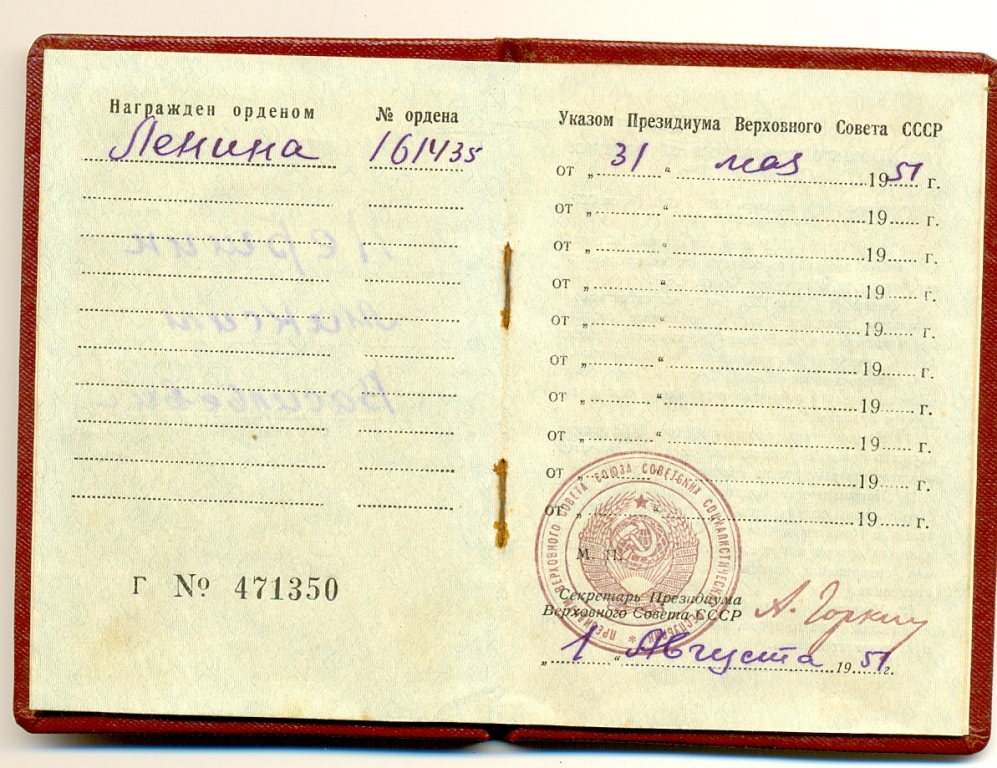 Награжден орденом № ордена
Ленина 161435
Г № 471350
Указом Президиума Верховного Совета СССР
от „ 31 “ мая 1951 г.
от „ “ 19 г.
от „ “ 19 г.
от „ “ 19 г.
от „ “ 19 г.
от „ “ 19 г.
от „ “ 19 г.
от „ “ 19 г.
от „ “ 19 г.
от „ “ 19 г.
ПРЕЗИДИУМ ВЕРХОВНОГО СОВЕТА СОЮЗА СОВЕТСКИХ СОЦИАЛИСТИЧЕСКИХ РЕСПУБЛИК
М. П.
Секретарь Президиума
Верховного Совета СССР А. Горкин
„ 1 “ Августа 1951 г.